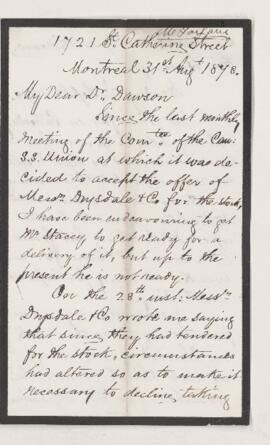 McFarlane
1721 St. Catherine Street
Montreal 31st Augt 1878.
My Dear Dr. Dawson
Since the last monthly
Meeting of the Comtee of the Can.
S.S. Union at which it was de-
cided to accept the offer of
Messrs Drysdale & Co for the stock,
I have been endeavouring to get
Mr Stacey to get ready for a
delivery of it, but up to the
present he is not ready.
On the 28th inst: Messrs
Drysdale & Co wrote me saying
that since they had tendered
for the stock, circumstances
had altered so as to make it
necessary to decline taking